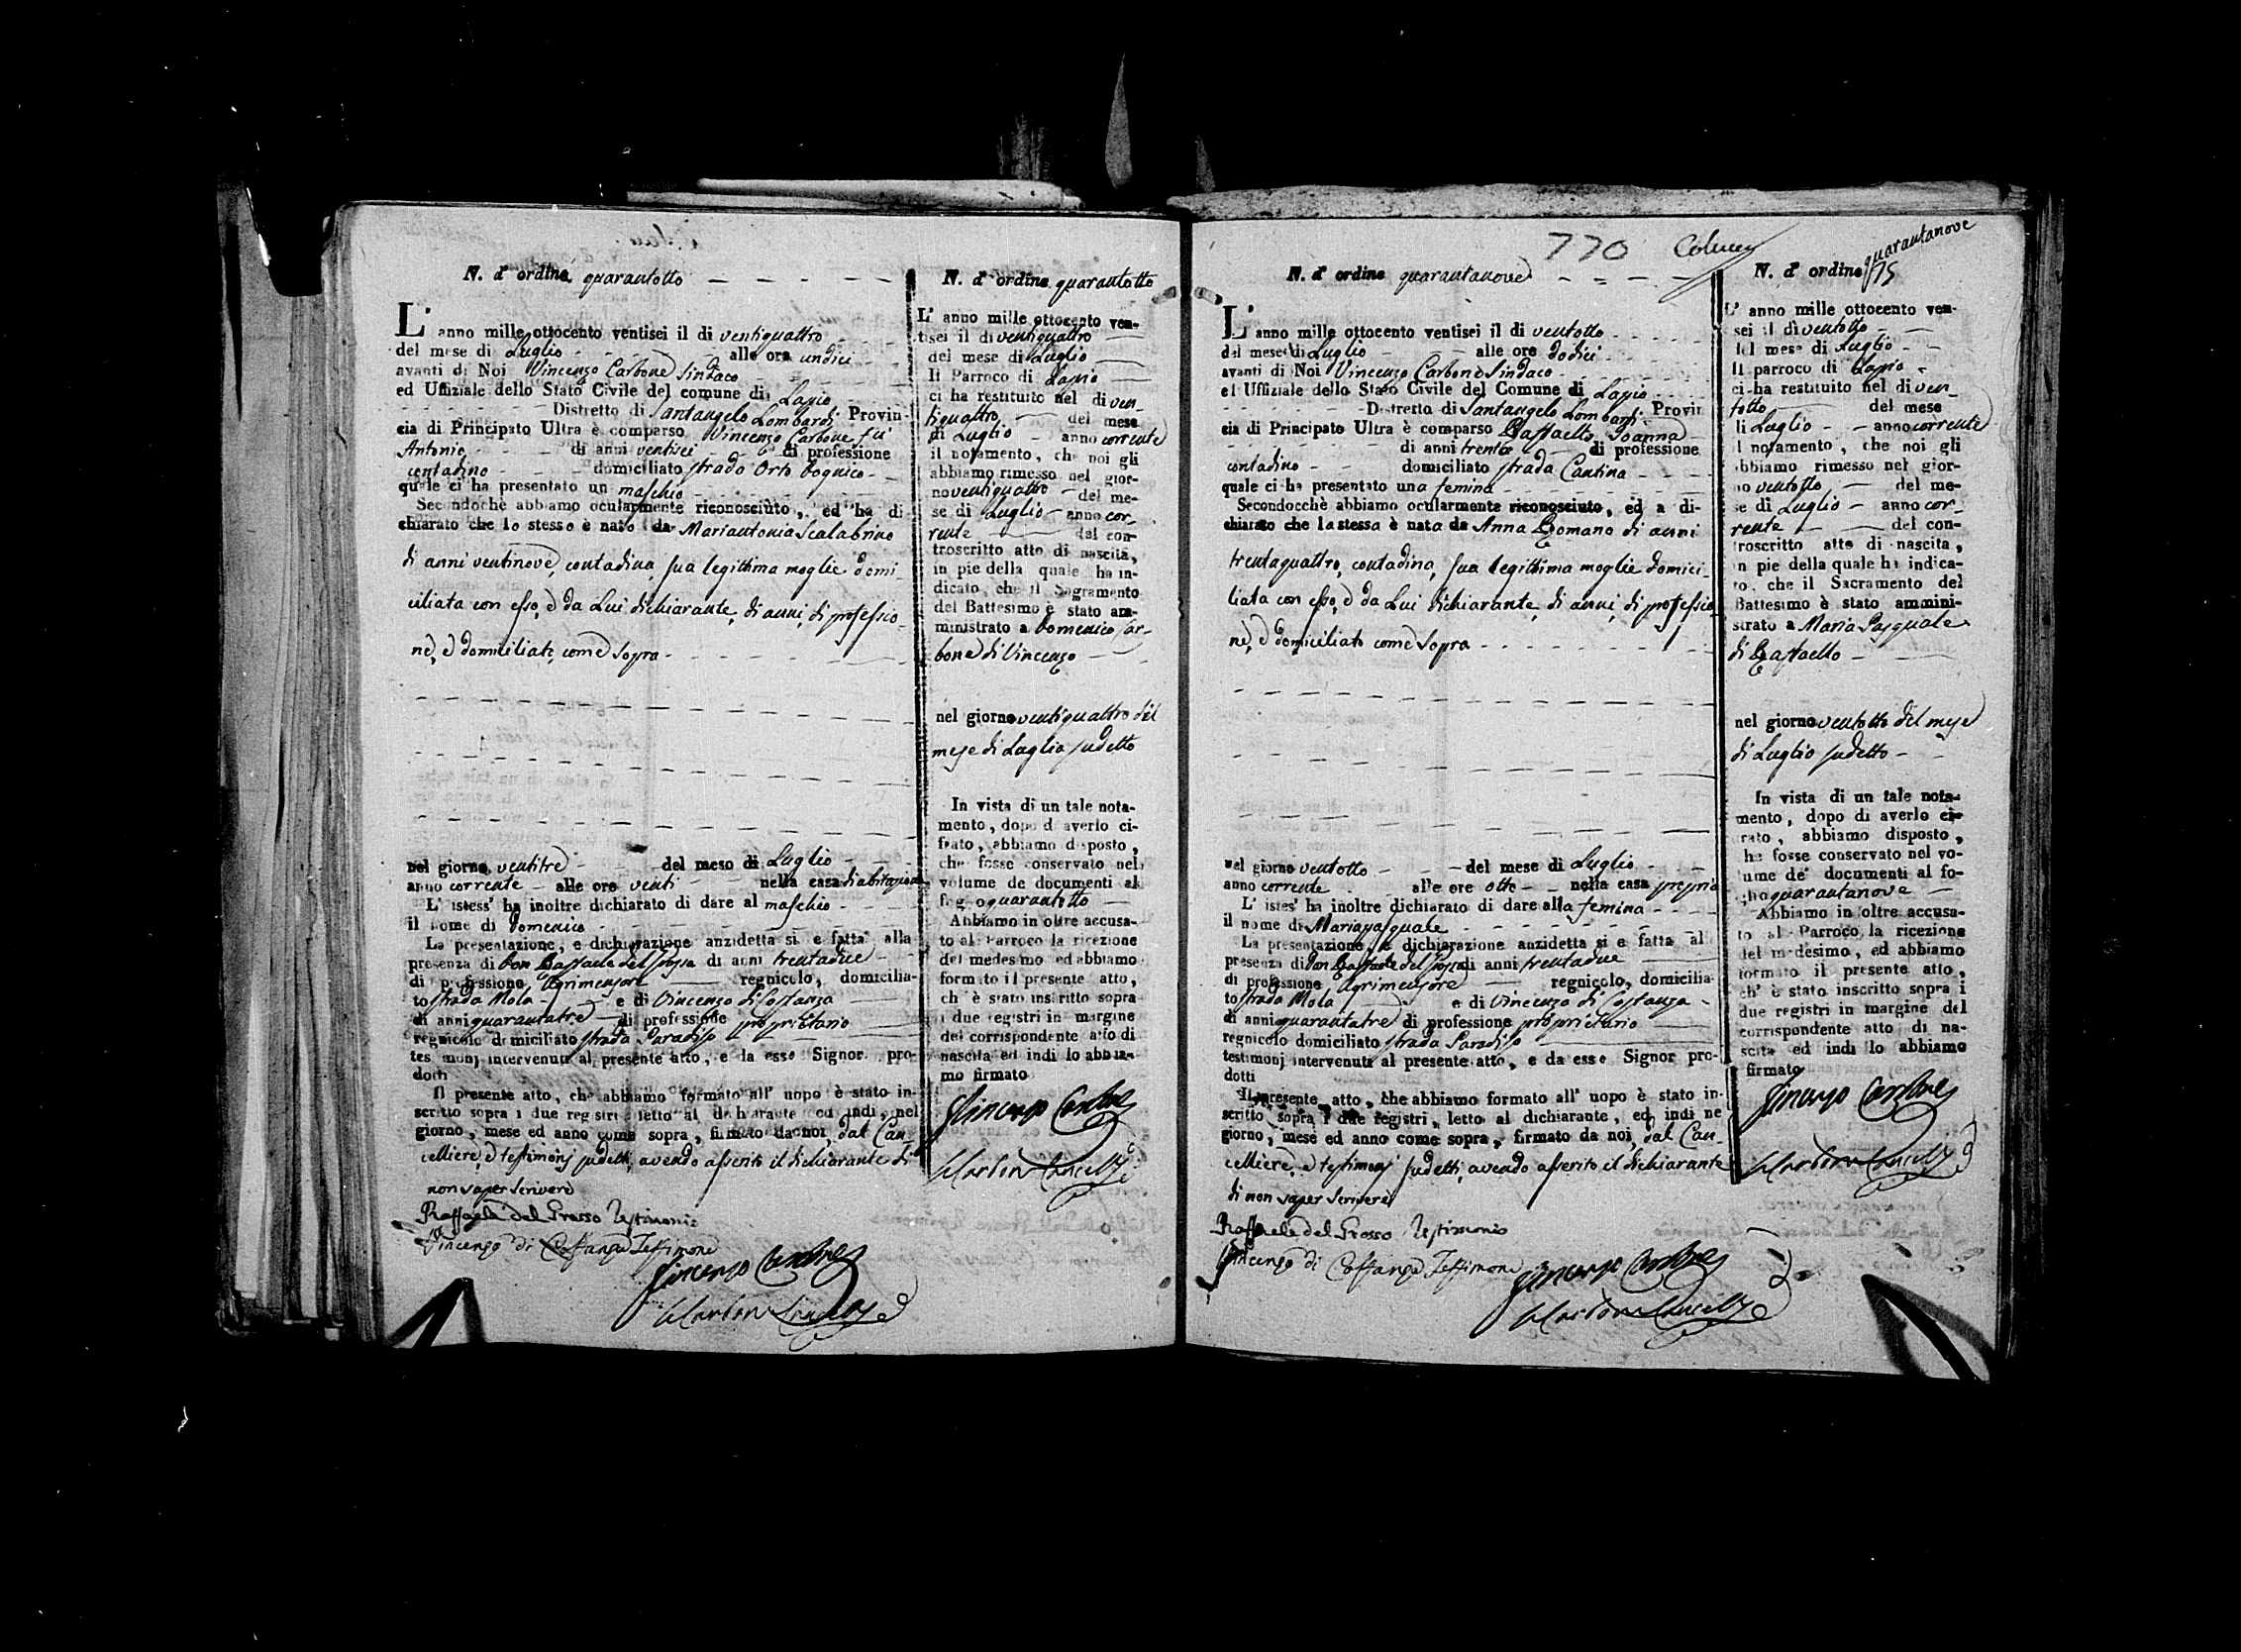 N. d' ordine quarantotto
L' anno mille ottocento ventisei il di ventiquattro
del mese di Luglio alle ore undici
avanti di Noi Vincenzo Carbone Sindaco
ed Uffiziale dello Stato Civile del comune di Lapio
Distretto di Santangelo Lombardi Provin-
cia di Principato Ultra è comparso Vincenzo Carbone fù
Antonio di anni ventisei di professione
contadino domiciliato strada Orto
quale ci ha presentato un maschio
Secondochè abbiamo ocularmente riconosciuto, ed ha di-
chiarato che lo stesso è nato da Mariantonia Scalabrino
di anni ventinove, contadina, sua legittima moglie domi-
ciliata con esso, è da Lui dichiarante, di anni, di professio-
ne, è domiciliato come sopra
nel giorno ventitre del mese di Luglio
anno corrente alle ore venti nella casa di abitazione
L' istess' ha inoltre dichiarato di dare al maschio
il nome di Domenico
La presentazione, e dichiarazione anzidetta si e fatta alla
presenza di Don Raffaele del Grosso di anni trentadue
di professione Agrimensore regnicolo, domicilia-
to strada Mola e di Vincenzo di Costanza
di anni quarantatre di professione proprietario
regnicolo domiciliato strada Paradiso
testimonj intervenuti al presente atto, e da esso Signor pro-
dotti
Il presente atto, che abbiamo formato all' uopo è stato in-
scritto sopra i due registri letto al dichiarante ed indi, nel
giorno, mese ed anno come sopra, firmato da noi, dal Can-
celliere, è testimonj sudetti, avendo asserito il dichiarante di
non saper scrivere
Raffaele del Grosso Testimonio
Vincenzo di Costanza Testimone
Vincenzo Carbone
N. d' ordine quarantotto
L' anno mille ottocento ven-
tisei il di ventiquattro
del mese di Luglio
Il Parroco di Lapio
ci ha restituito nel di ven-
tiquattro del mese
di Luglio anno corrente
il notamento, che noi gli
abbiamo rimesso nel gior-
no ventiquattro del me-
se di Luglio anno cor-
rente del con-
troscritto atto di nascita,
in pie della quale ha in-
dicato, che il Sagramento
del Battesimo è stato am-
ministrato a Domenico Car-
bone di Vincenzo
nel giorno ventiquattro del
mese di Luglio sudetto
In vista di un tale nota-
mento, dopo d averlo ci-
frato, abbiamo disposto,
che fosse conservato nel
volume de documenti al
foglio quarantotto
Abbiamo in oltre accusa-
to al Parroco la ricezione
del medesimo ed abbiamo
formato il presente atto,
ch' è stato inscritto sopra
i due registri in margine
del corrispondente atto di
nascita ed indi lo abbia-
mo firmato
Vincenzo Carbone
770
N. d' ordine quarantanove
L' anno mille ottocento ventisei il di ventotto
del mese di Luglio alle ore dodici
avanti di Noi Vincenzo Carbone Sindaco
el Uffiziale dello Stato Civile del Comune di Lapio
Distretto di Santangelo Lombardi Provin
cia di Principato Ultra è comparso Raffaello Ioanna
di anni trenta di professione
contadino domiciliato strada Cantina
quale ci ha presentato una femina
Secondocchè abbiamo ocularmente riconosciuto, ed a di-
chiarato che la stessa è nata da Anna Romano di anni
trentaquattro, contadina, sua legittima moglie domici-
liata con esso, è da Lui dichiarante, di anni, di professio-
ne, è domiciliato come sopra
nel giorno ventotto del mese di Luglio
anno corrente alle ore otto nella casa propria
L' istes' ha inoltre dichiarato di dare alla femina
il nome di Mariapasquale
La presentazione, e dichiarazione anzidetta si e fatta al
presenza di Don Raffaele del Grosso di anni trentadue
di professione Agrimensore regnicolo, domicilia-
to strada Mola e di Vincenzo di Costanza
di anni quarantatre di professione proprietario
regnicolo domiciliato strada Paradiso
testimonj intervenuti al presente atto, e da esso Signor pro-
dotti
Il presente atto, che abbiamo formato all' uopo è stato in-
scritto sopra i due registri, letto al dichiarante, ed indi ne
giorno, mese ed anno come sopra, firmato da noi, dal Can-
celliere, è testimonj sudetti, avendo asserito il dichiarante
di non saper scrivere
Raffaele del Grosso Testimonio
Vincenzo di Costanza Testimone
Vincenzo Carbone
N. d' ordine quarantanove
75
L' anno mille ottocento ven-
sei il di ventotto
del mese di Luglio
Il parroco di Lapio
ci ha restituito nel di ven-
totto del mese
li Luglio anno corrente
il notamento, che noi gli
abbiamo rimesso nel gior-
no ventotto del me-
se di Luglio anno cor-
rente del con-
troscritto atto di nascita,
in pie della quale ha indica-
to, che il Sacramento del
Battesimo è stato ammini-
strato a Maria Pasquale
di Raffaello
nel giorno ventotto del mese
di Luglio sudetto
In vista di un tale nota-
mento, dopo di averlo ci-
frato, abbiamo disposto,
he fosse conservato nel vo-
lume de' documenti al fo-
glio quarantanove
Abbiamo in oltre accusa-
to al Parroco la ricezione
del medesimo, ed abbiamo
formato il presente atto,
ch' è stato inscritto sopra i
due registri in margine del
corrispondente atto di na-
scita ed indi lo abbiamo
firmato
Vincenzo Carbone